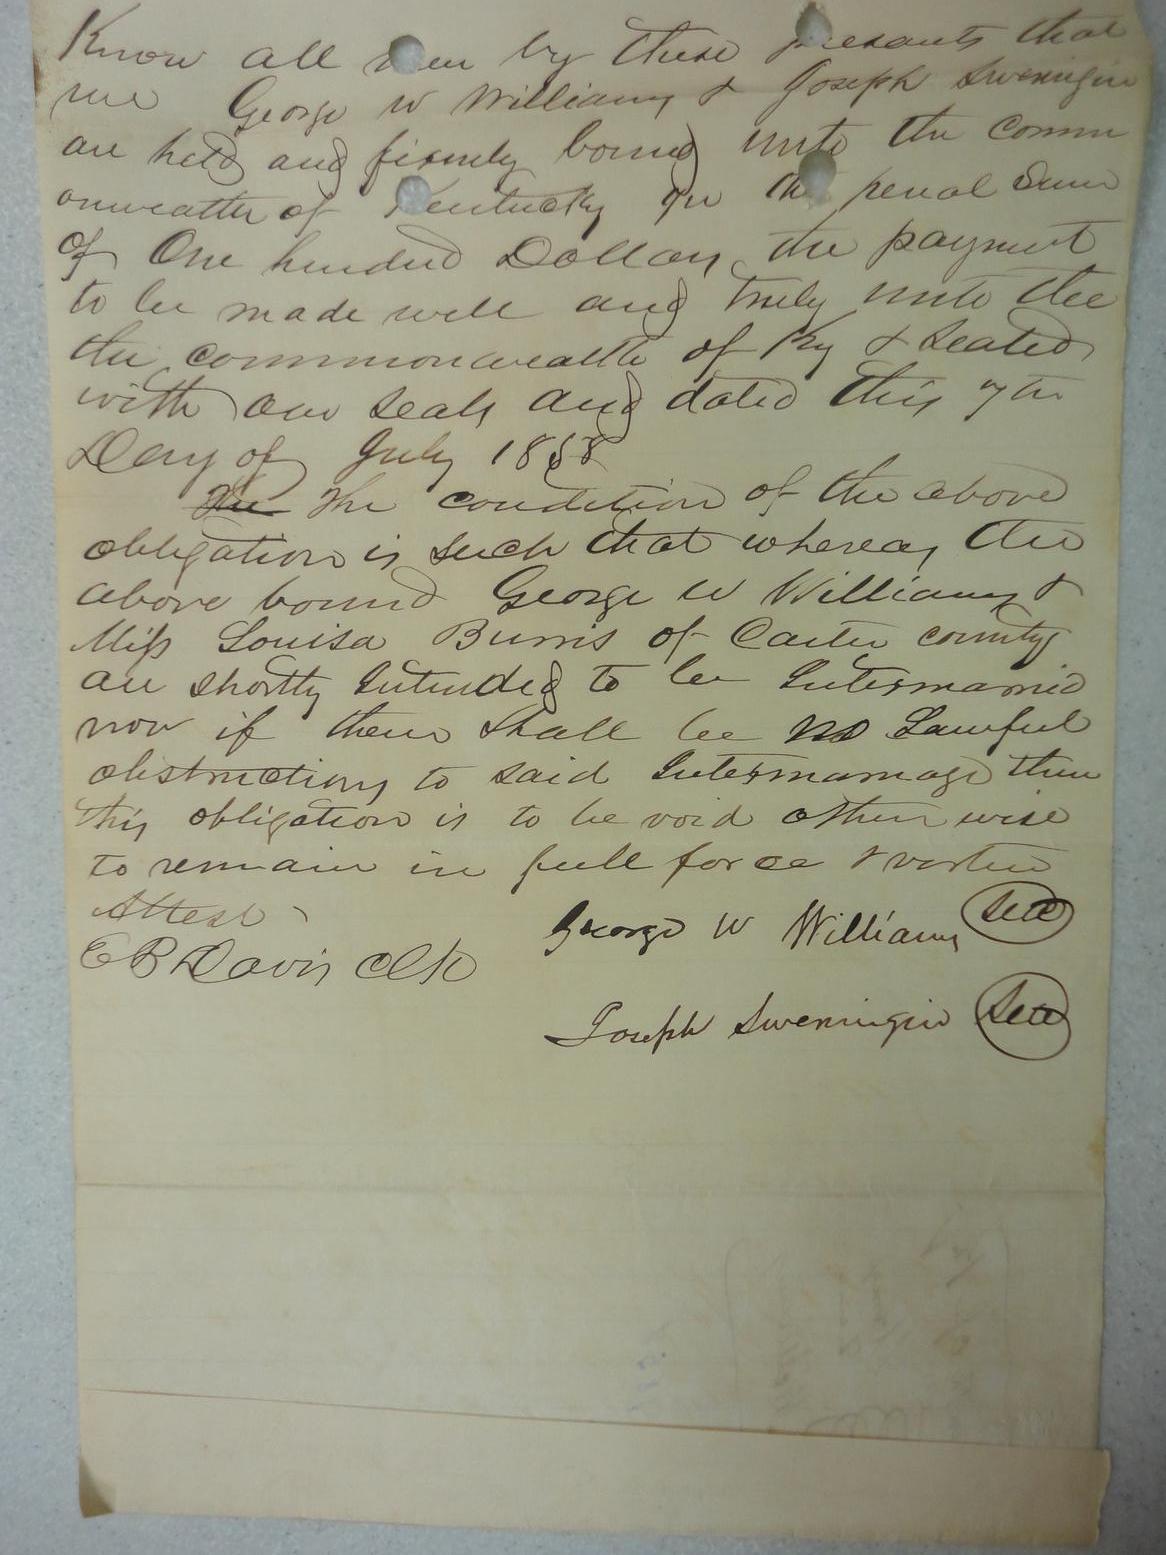 Know all men by these presants that
we George W Williams & Joseph Sweningin
are held and firmly bound unto the Comm
onwealth of Kentucky In the penal Sum
of One hundred Dollars the payment
to be made well and truly unto the
the Commonwealth of Ky & Sealed
with our seals and dated this 7th
Day of July 1858
The The condition of the above
obligation is such that whereas the
above bound George W Williams &
Miss Louisa Burris of Carter county
are shortly Intended to be Intermarried
now if there shall be no Lawful
obstructions to said Intermarriage then
this obligation is to be void otherwise
to remain in full force & virtue
Attest
George W Williams Seal
E B Davis Clk
Joseph Sweningin Seal